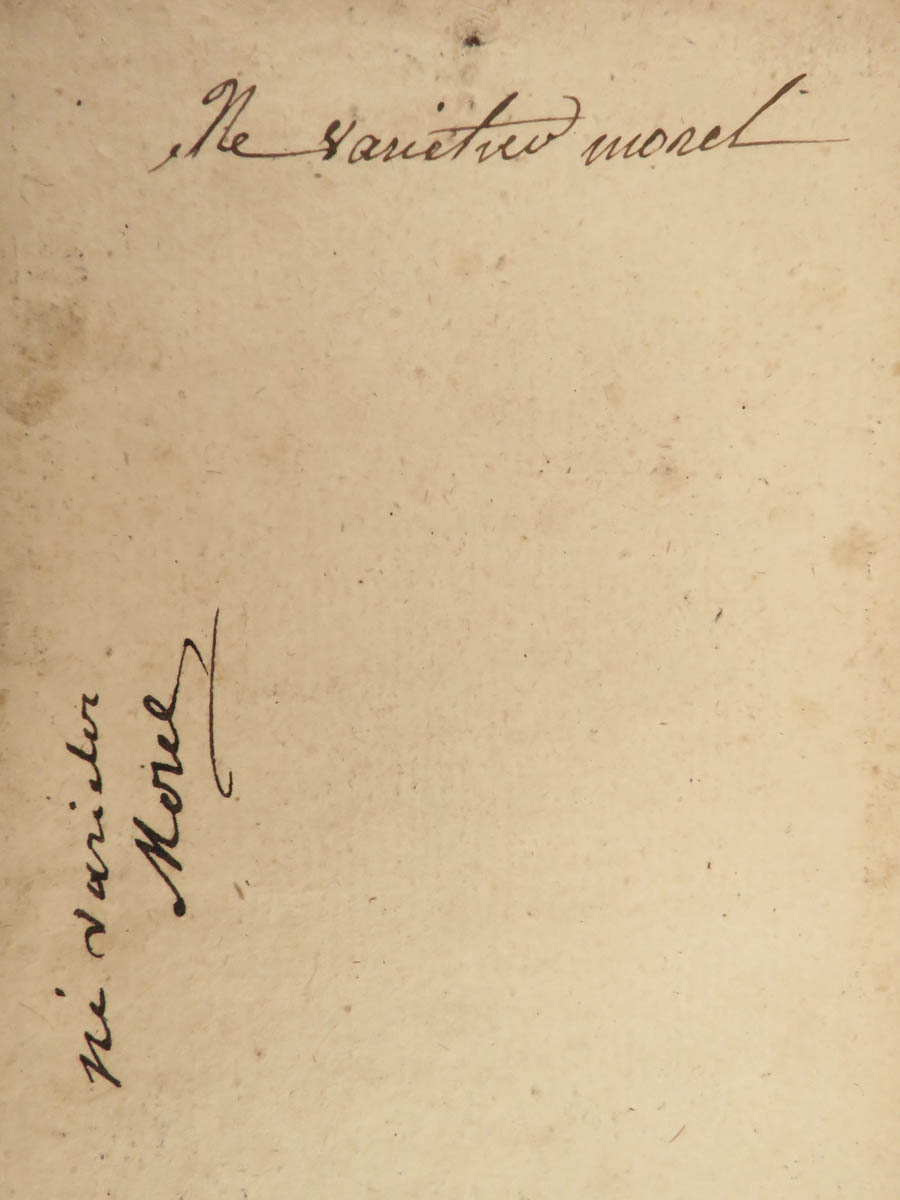 Ne varietur morel
ni varietur
Morel